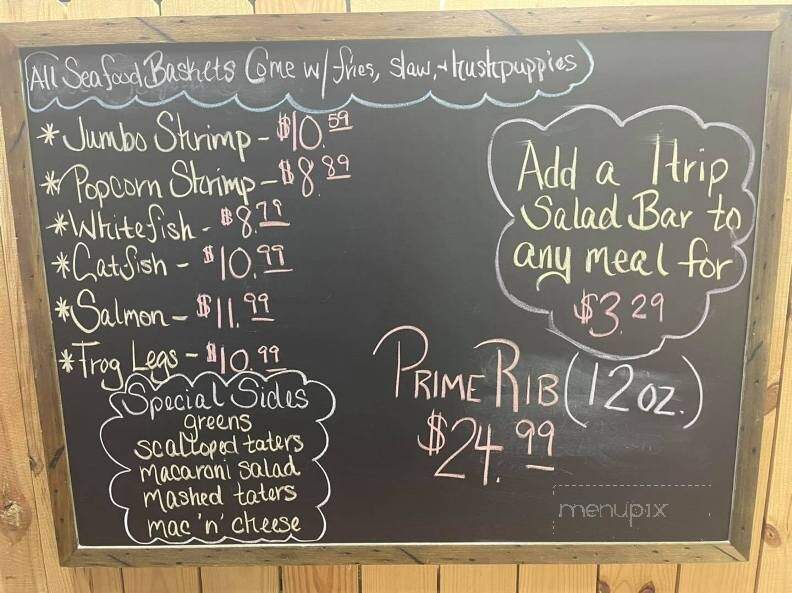 All Seafood Baskets Come w/ fries, slaw, + hushpuppies
* Jumbo Shrimp - $10.59
* Popcorn Shrimp - $8.89
* Whitefish - $8.79
* Catfish - $10.99
* Salmon - $11.99
* Frog Legs - $10.99
Special Sides
greens
scalloped taters
macaroni salad
mashed taters
mac 'n' cheese
Add a 1 trip
Salad Bar to
any meal for
$3.29
Prime Rib (12 oz.)
$24.99
menupix